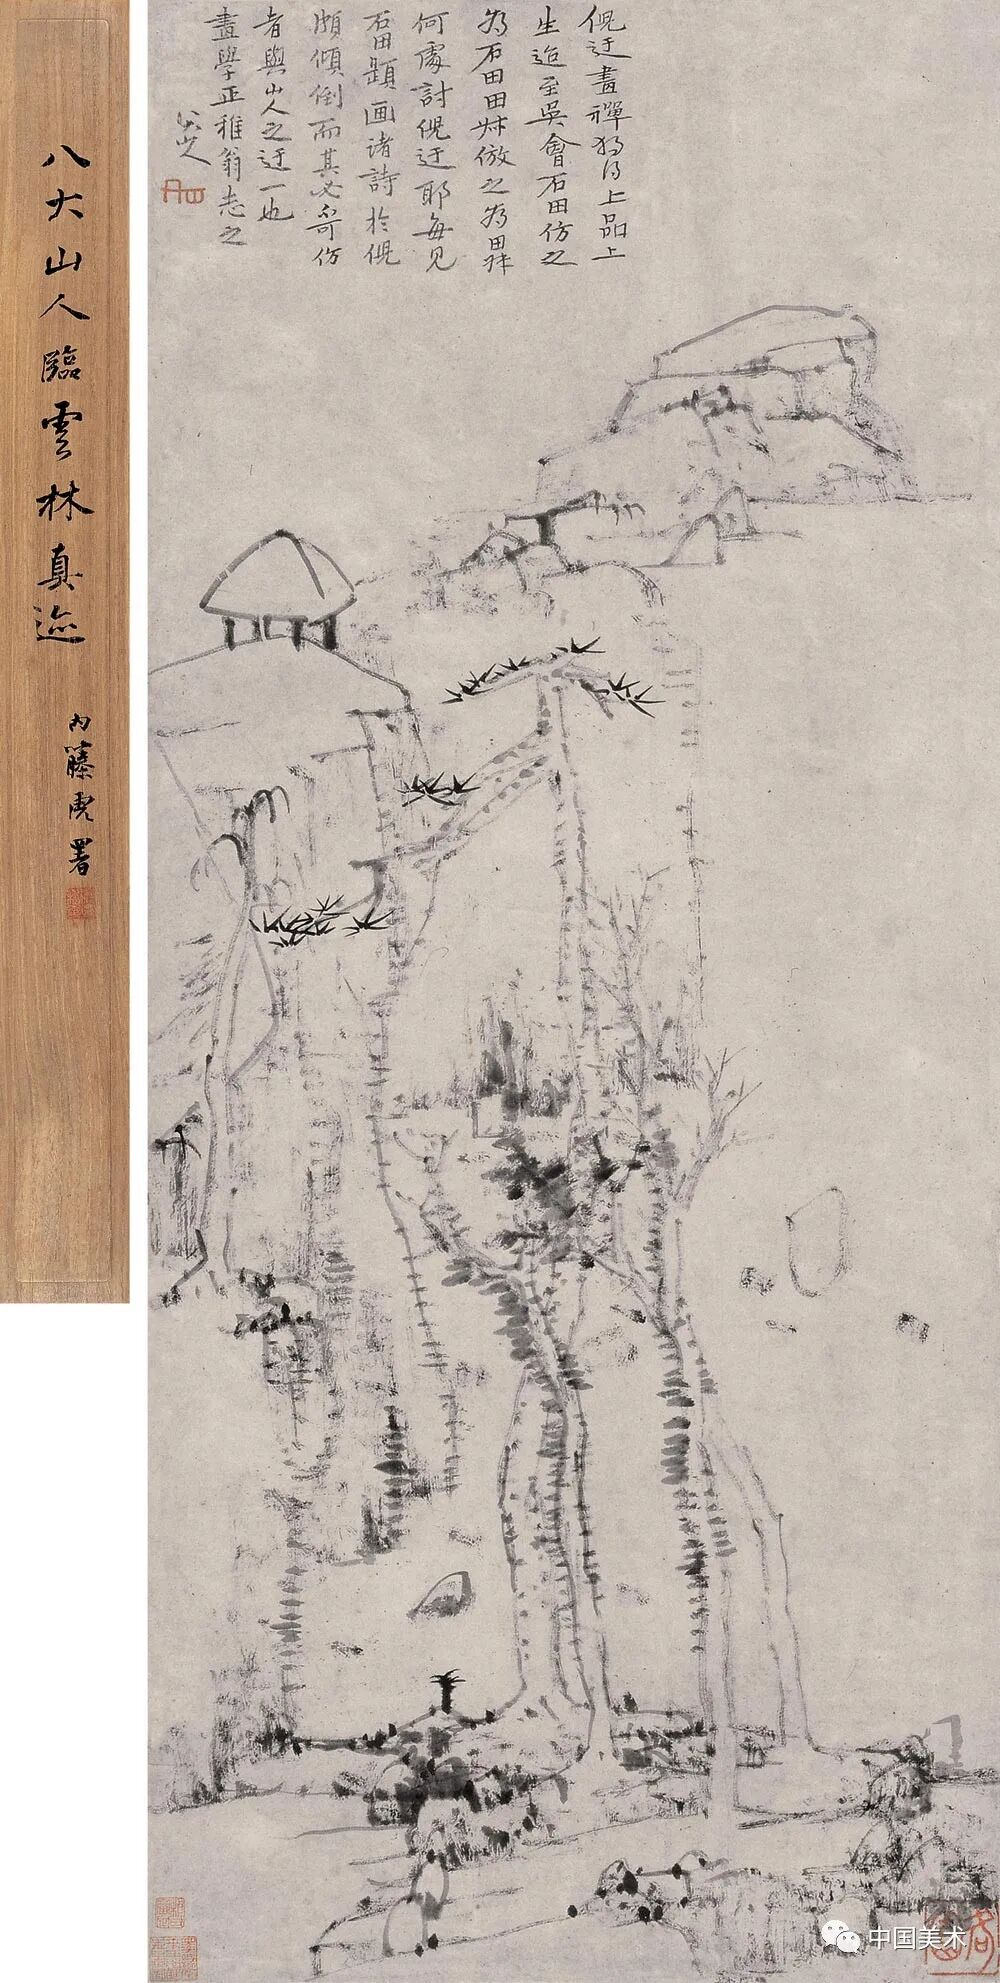 倪迂畫禪獨得上品上
生迨至吳會石田仿之
為石田田林倣之為田林
何處討倪迂耶每見
石田題画诸詩於倪
頗傾倒而其必哥仿
者與山人之迂一也
畫學正稚翁志之
八大山人
八大山人臨雲林真迹
内藤虎署
中国美术